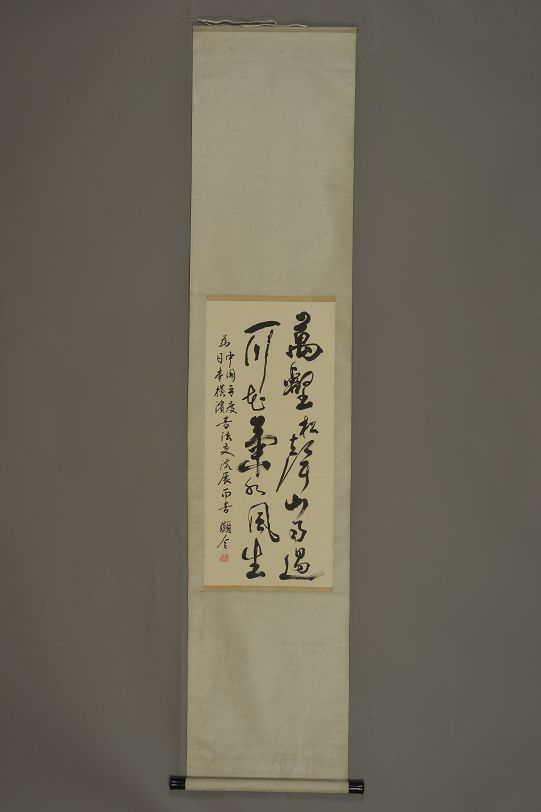 萬壑松聲山雨過
一川花氣水風生
為中國重慶
日本橫濱書法交流展而書 顯全